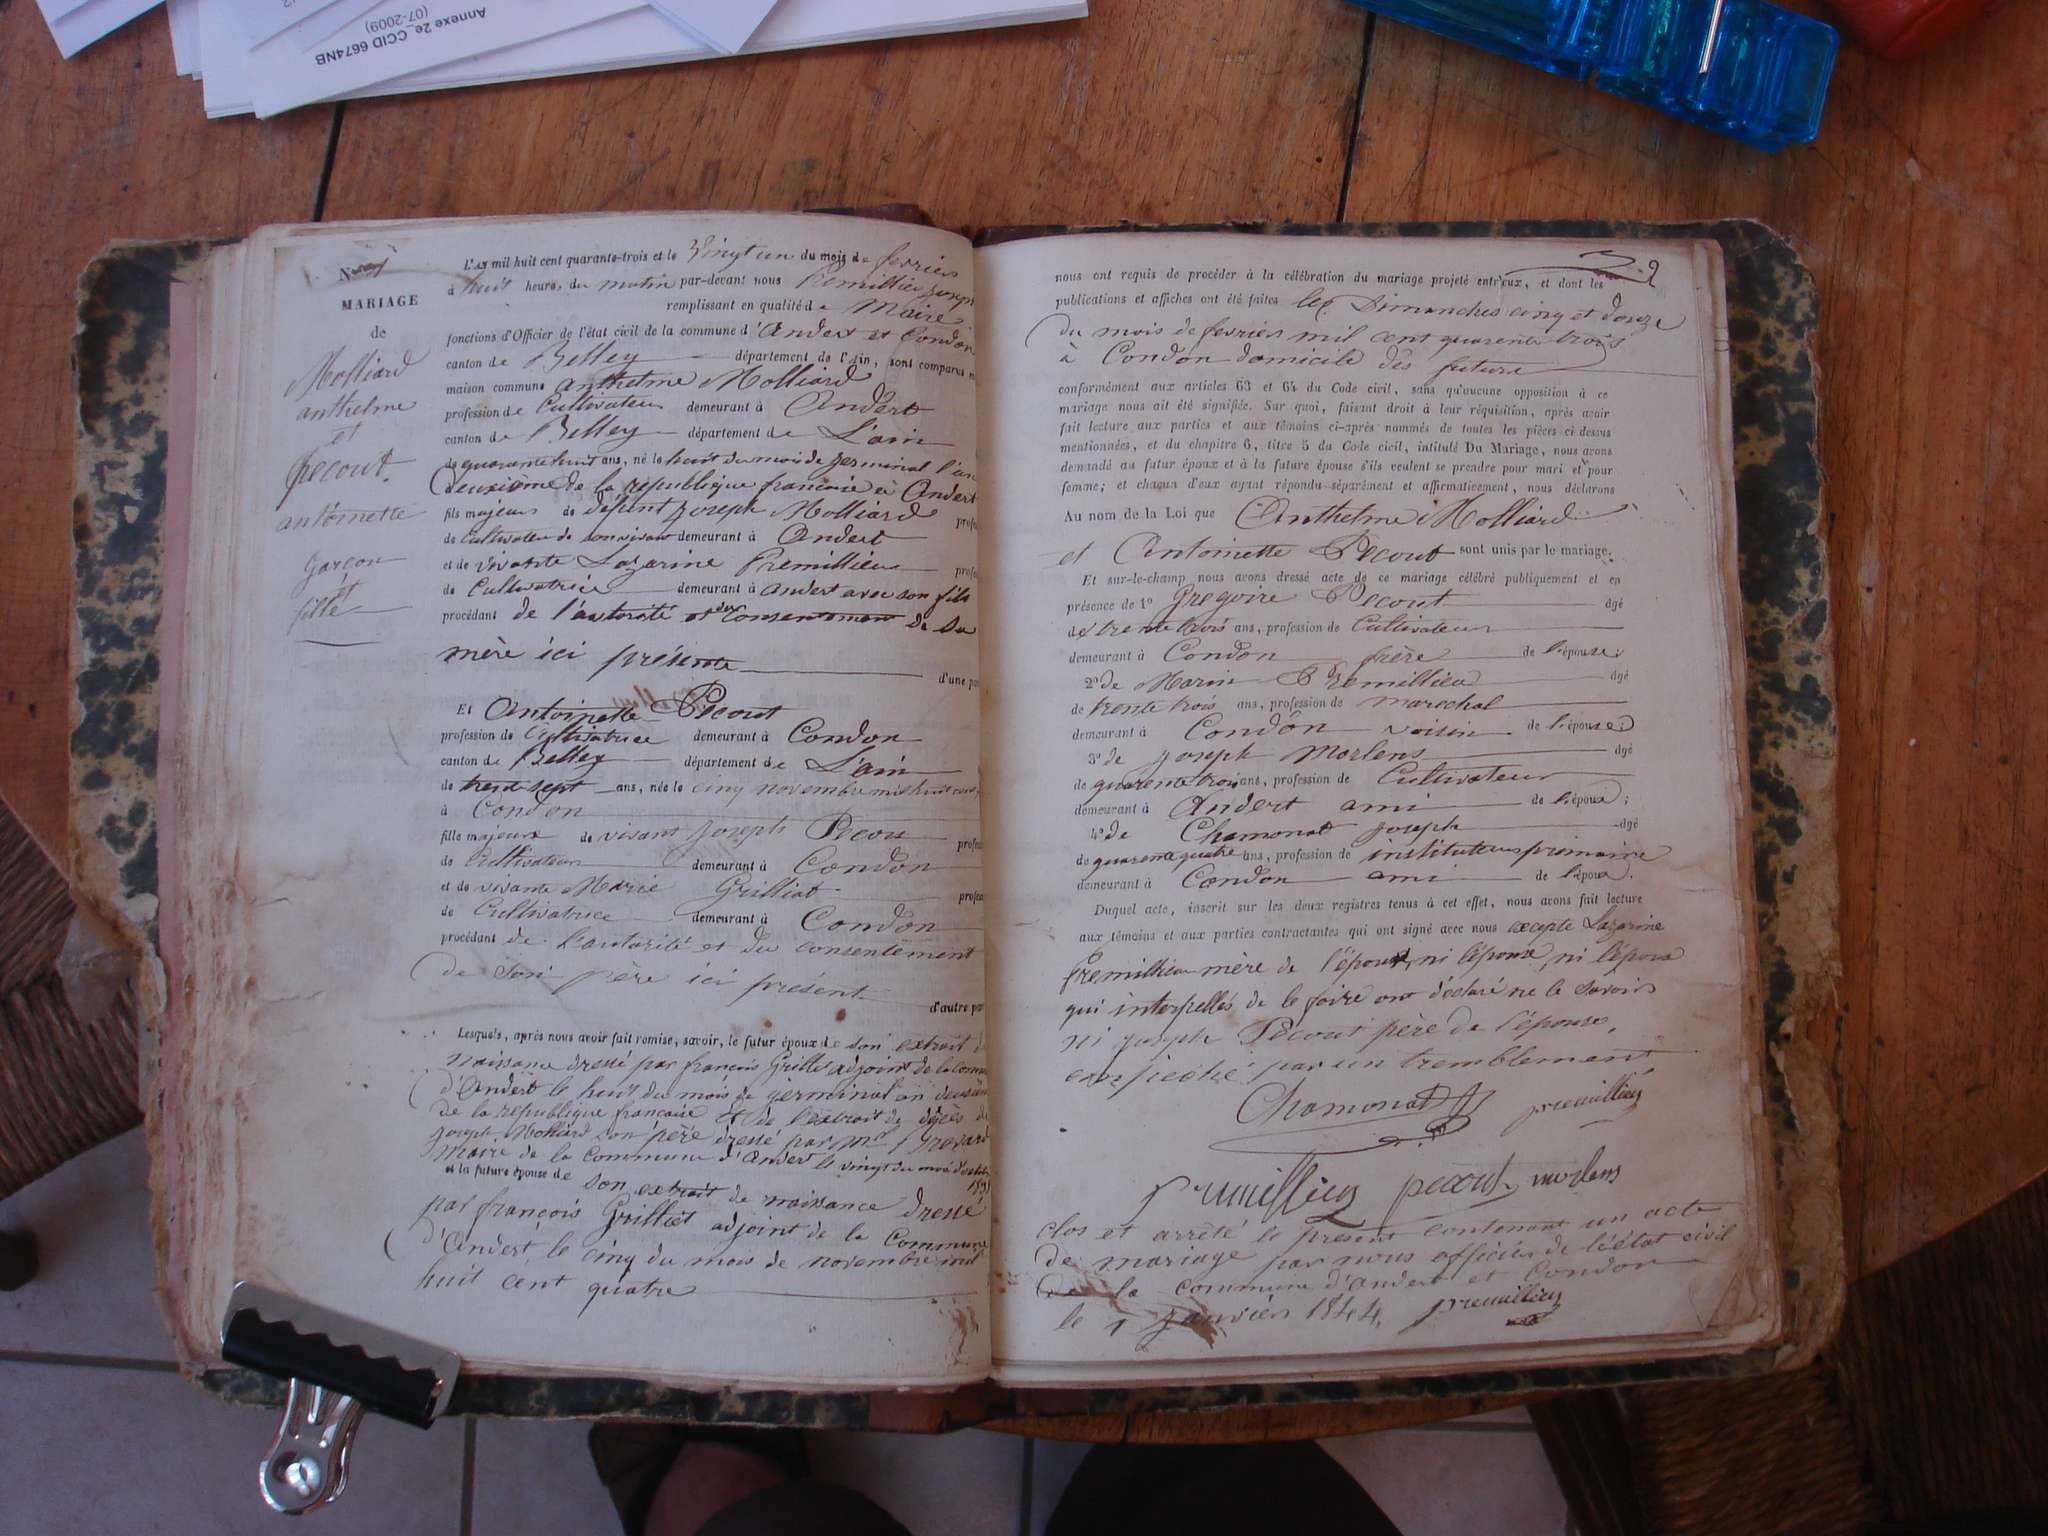 Annexe 2e_CCID 6674NB
(07-2009)
N°
MARIAGE
de
Molliard
anthelme
et
pecout.
antoinette
garçon
et
fille
L'AN mil huit cent quarante-trois et le Vingt un du mois de fevrier
à huit heures du matin par-devant nous Premillieu Joseph
remplissant en qualité de Maire
fonctions d'Officier de l'état civil de la commune d'Andert et Condon
canton de Belley département de l'Ain, sont comparus
maison commune Anthelme Molliard
profession de Cultivateur demeurant à Andert
canton de Belley département de L'ain
de quarante huit ans, né le huit du mois de germinal l'an
deuxième de la republique francaise à Andert
fils majeur de défunt Joseph Molliard
de Cultivateur de son vivant demeurant à Andert
et de vivante Lazarine Premillieu
de Cultivatrice demeurant à andert avec son fils
procédant de l'autorité et du consentement de sa
mère ici présente
d'une
Et Antoinette Pecout
profession de Cultivatrice demeurant à Condon
canton de Belley département de L'ain
de trente sept ans, née le cinq novembre mil huit cent
à Condon
fille majeure de vivant Joseph Pecou
de Cultivateur demeurant à Condon
et de vivante Marie Grilliat
de Cultivatrice demeurant à Condon
procédant de l'autorité et du consentement
de son père ici présent
d'autre
Lesquels, après nous avoir fait remise, savoir, le futur époux de son extrait de
naissance dressé par françois Grillet adjoint de la
d'Andert le huit du mois de germinal an
de la republique francaise et de l'extrait de décès de
Joseph Molliard son père dressé par Mr
maire de la Commune d'Andert le vingt du mois
et la future épouse de son extrait de naissance dressé
par françois Grilliet adjoint de la Commune
d'Andert le cinq du mois de novembre mil
huit cent quatre
2
nous ont requis de procéder à la célébration du mariage projeté entr'eux, et dont les
publications et affiches ont été faites les Dimanches cinq et douze
du mois de fevrier mil cent quarente trois
à Condon domicile dès future
conformément aux articles 63 et 64 du Code civil, sans qu'aucune opposition à ce
mariage nous ait été signifiée. Sur quoi, faisant droit à leur réquisition, après avoir
fait lecture aux parties et aux témoins ci-après nommés de toutes les pièces ci-dessus
mentionnées, et du chapitre 6, titre 5 du Code civil, intitulé Du Mariage, nous avons
demandé au futur époux et à la future épouse s'ils veulent se prendre pour mari et pour
femme; et chacun d'eux ayant répondu séparément et affirmativement, nous déclarons
Au nom de la Loi que Anthelme Molliard
et Antoinette Pecout sont unis par le mariage.
Et sur-le-champ nous avons dressé acte de ce mariage célébré publiquement et en
présence de 1° Gregoire Pecout âgé
de trente trois ans, profession de Cultivateur
demeurant à Condon frère de l'épouse;
2° de Marin Premillieu âgé
de trente trois ans, profession de marechal
demeurant à Condon voisin de l'épouse;
3° de Joseph Morlens âgé
de quarente trois ans, profession de Cultivateur
demeurant à Andert ami de l'époux;
4° de Chamonat Joseph âgé
de quarente quatre ans, profession de instituteur primaire
demeurant à Condon ami de l'époux.
Duquel acte, inscrit sur les deux registres tenus à cet effet, nous avons fait lecture
aux témoins et aux parties contractantes qui ont signé avec nous excepte Lazarine
Premillieu mère de l'époux, ni l'épouse, ni l'époux
qui interpellés de le faire ont déclaré ne le savoir
ni joseph Pecout père de l'épouse,
par un tremblement
Chamonat premillieu
premillieu pecout morlens
clos et arrêté le présent contenant un acte
de mariage par nous officier de l'état civil
de la commune d'Andert et Condon
le 1 janvier 1844. premillieu